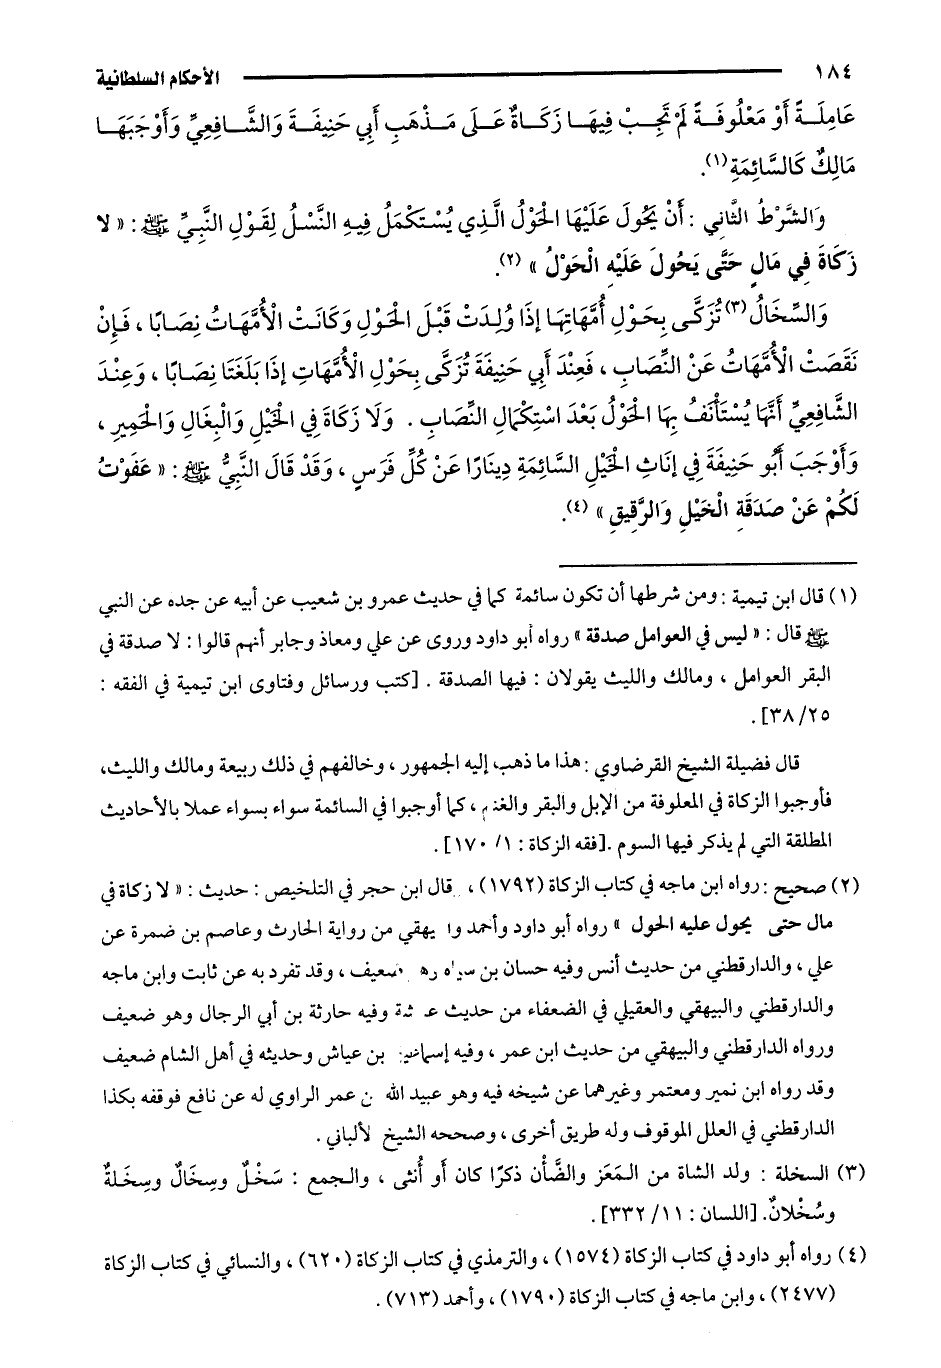 ١٨٤ الأحكام السلطانية
عَامِلَةً أَوْ مَعْلُوفَةً لَمْ تَجِبْ فِيهَا زَكَاةٌ عَلَى مَذْهَبِ أَبِي حَنِيفَةَ وَالشَّافِعِيِّ وَأَوْجَبَهَا
مَالِكٌ كَالسَّائِمَةِ (١).
وَالشَّرْطُ الثَّانِي : أَنْ يَحُولَ عَلَيْهَا الْحَوْلُ الَّذِي يُسْتَكْمَلُ فِيهِ النَّسْلُ لِقَوْلِ النَّبِيِّ ﷺ : « لا
زَكَاةَ فِي مَالٍ حَتَّى يَحُولَ عَلَيْهِ الْحَوْلُ » (٢).
وَالسِّخَالُ (٣) تُزَكَّى بِحَوْلِ أُمَّهَاتِهَا إِذَا وُلِدَتْ قَبْلَ الْحَوْلِ وَكَانَتْ الْأُمَّهَاتُ نِصَابًا ، فَإِنْ
نَقَصَتْ الْأُمَّهَاتُ عَنْ النِّصَابِ ، فَعِنْدَ أَبِي حَنِيفَةَ تُزَكَّى بِحَوْلِ الْأُمَّهَاتِ إِذَا بَلَغَتَا نِصَابًا ، وَعِنْدَ
الشَّافِعِيِّ أَنَّهَا يُسْتَأْنَفُ بِهَا الْحَوْلُ بَعْدَ اسْتِكْمَالِ النِّصَابِ . وَلَا زَكَاةَ فِي الْخَيْلِ وَالْبِغَالِ وَالْحَمِيرِ ،
وَأَوْجَبَ أَبُو حَنِيفَةَ فِي إِنَاثِ الْخَيْلِ السَّائِمَةِ دِينَارًا عَنْ كُلِّ فَرَسٍ ، وَقَدْ قَالَ النَّبِيُّ ﷺ : « عَفَوْتُ
لَكُمْ عَنْ صَدَقَةِ الْخَيْلِ وَالرَّقِيقِ » (٤).
(١) قال ابن تيمية : ومن شرطها أن تكون سائمة كما في حديث عمرو بن شعيب عن أبيه عن جده عن النبي
ﷺ قال : « ليس في العوامل صدقة » رواه أبو داود وروى عن علي ومعاذ وجابر أنهم قالوا : لا صدقة في
البقر العوامل ، ومالك والليث يقولان : فيها الصدقة . [كتب ورسائل وفتاوى ابن تيمية في الفقه :
٣٨/٢٥] .
قال فضيلة الشيخ القرضاوي : هذا ما ذهب إليه الجمهور ، وخالفهم في ذلك ربيعة ومالك والليث،
فأوجبوا الزكاة في المعلوفة من الإبل والبقر والغنم ، كما أوجبوا في السائمة سواء بسواء عملا بالأحاديث
المطلقة التي لم يذكر فيها السوم . [فقه الزكاة : ١/ ١٧٠] .
(٢) صحيح : رواه ابن ماجه في كتاب الزكاة (١٧٩٢) ، قال ابن حجر في التلخيص : حديث : « لا زكاة في
مال حتى يحول عليه الحول » رواه أبو داود وأحمد و يهقي من رواية الحارث وعاصم بن ضمرة عن
علي ، والدارقطني من حديث أنس وفيه حسان بن ضعيف ، وقد تفرد به عن ثابت وابن ماجه
والدارقطني والبيهقي والعقيلي في الضعفاء من حديث وفيه حارثة بن أبي الرجال وهو ضعيف
ورواه الدارقطني والبيهقي من حديث ابن عمر ، وفيه إسماعيل بن عياش وحديثه في أهل الشام ضعيف
وقد رواه ابن نمير ومعتمر وغيرهما عن شيخه فيه وهو عبيد الله ن عمر الراوي له عن نافع فوقفه بكذا
الدارقطني في العلل الموقوف وله طريق أخرى ، وصححه الشيخ لألباني .
(٣) السخلة : ولد الشاة من المَعَز والضَّأْن ذكرًا كان أو أُنثى ، والجمع : سَخْلٌ وسِخَالٌ وسِخَلةٌ
وسُخْلانٌ. [اللسان : ١١/ ٣٣٢] .
(٤) رواه أبو داود في كتاب الزكاة (١٥٧٤) ، والترمذي في كتاب الزكاة (٦٢٠) ، والنسائي في كتاب الزكاة
(٢٤٧٧) ، وابن ماجه في كتاب الزكاة (١٧٩٠) ، وأحمد (٧١٣) .